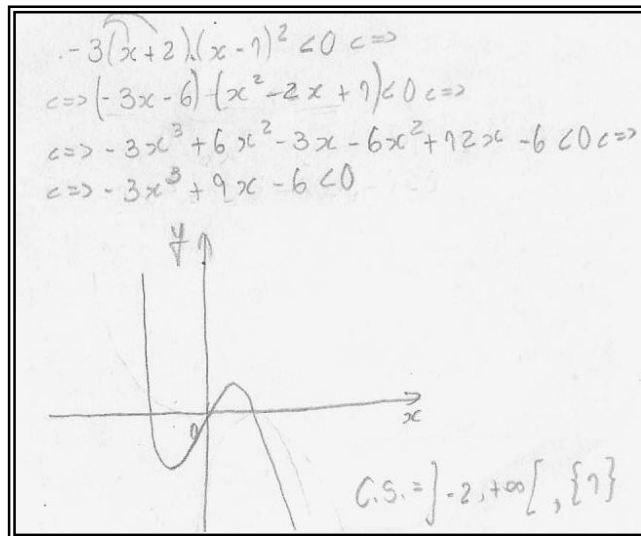 -3(x+2).(x-1)² <0 <=>
<=> (-3x-6)·(x²-2x+1)<0 <=>
<=> -3x³+6x²-3x-6x²+12x-6<0 <=>
<=> -3x³+9x-6<0
y
0
x
C.S.=]-2,+∞[, {1}